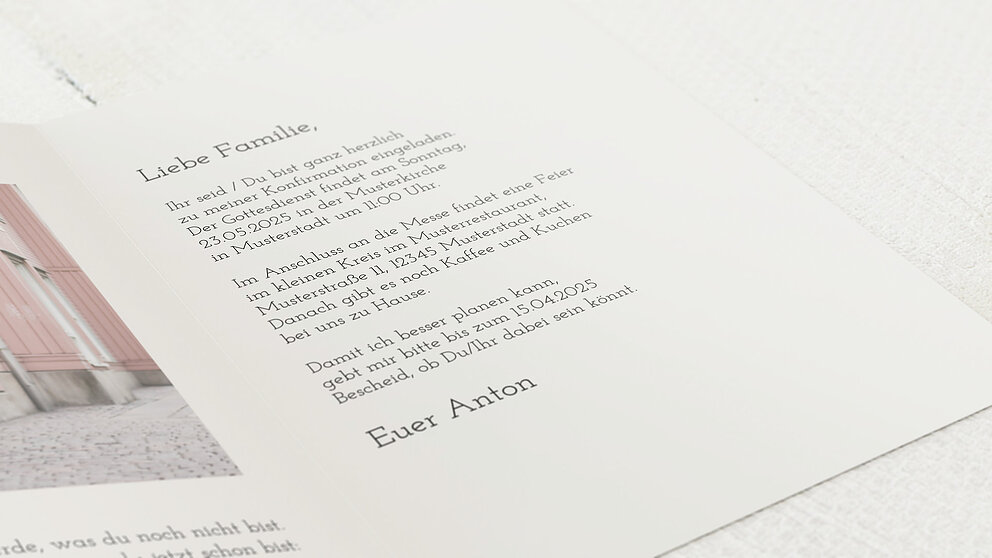 Liebe Familie,
Ihr seid / Du bist ganz herzlich
zu meiner Konfirmation eingeladen.
Der Gottesdienst findet am Sonntag,
23.05.2025 in der Musterkirche
in Musterstadt um 11:00 Uhr.
Im Anschluss an die Messe findet eine Feier
im kleinen Kreis im Musterrestaurant,
Musterstraße 11, 12345 Musterstadt statt.
Danach gibt es noch Kaffee und Kuchen
bei uns zu Hause.
Damit ich besser planen kann,
gebt mir bitte bis zum 15.04.2025
Bescheid, ob Du/Ihr dabei sein könnt.
Euer Anton
was du noch nicht bist.
jetzt schon bist: